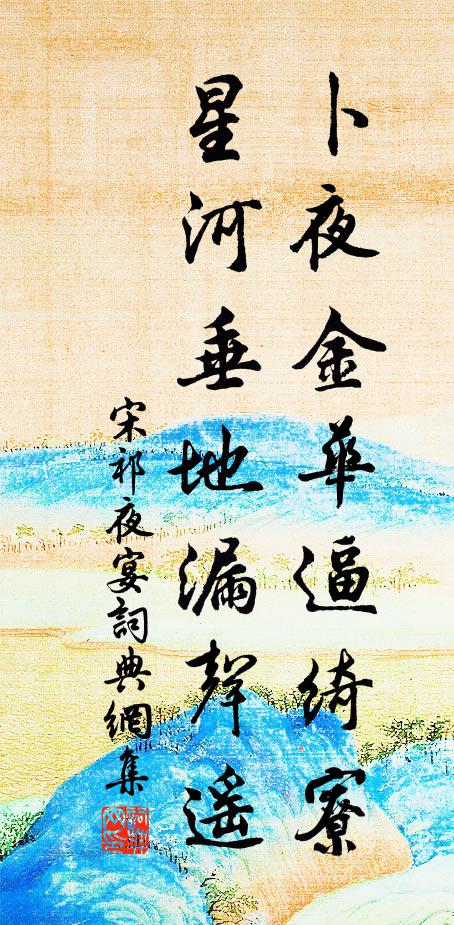 卜夜金華逼綺寮
星河垂地漏聲遥
宋祁夜宴詞典網集